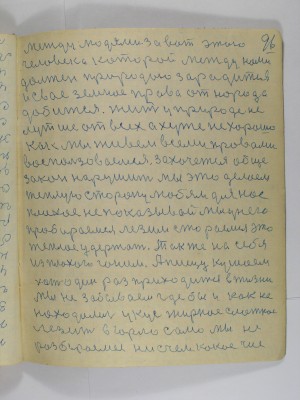 96
между людьми зовот этого
человека которой между нами
должен природою зародится
и свое земное право от народа
добится. жить у природе не
лутше от всех а хуже не хорошо
как мы живем всеми правами
воспользоваемся, захочется обще
закон нарушить мы это делаем
теплую сторону любям для нас
плохое не показывай мы у него
пробираемся, лезим стораемся это
тёплое удержат. Также на себя
из плохого гоним. А пищу кушаем
хоть один раз приходится в жизни
мы не забываем где бы и как не
находились у кус жирное сладкое
лезит в горло само мы не
разбираемся ни с чем какое чие